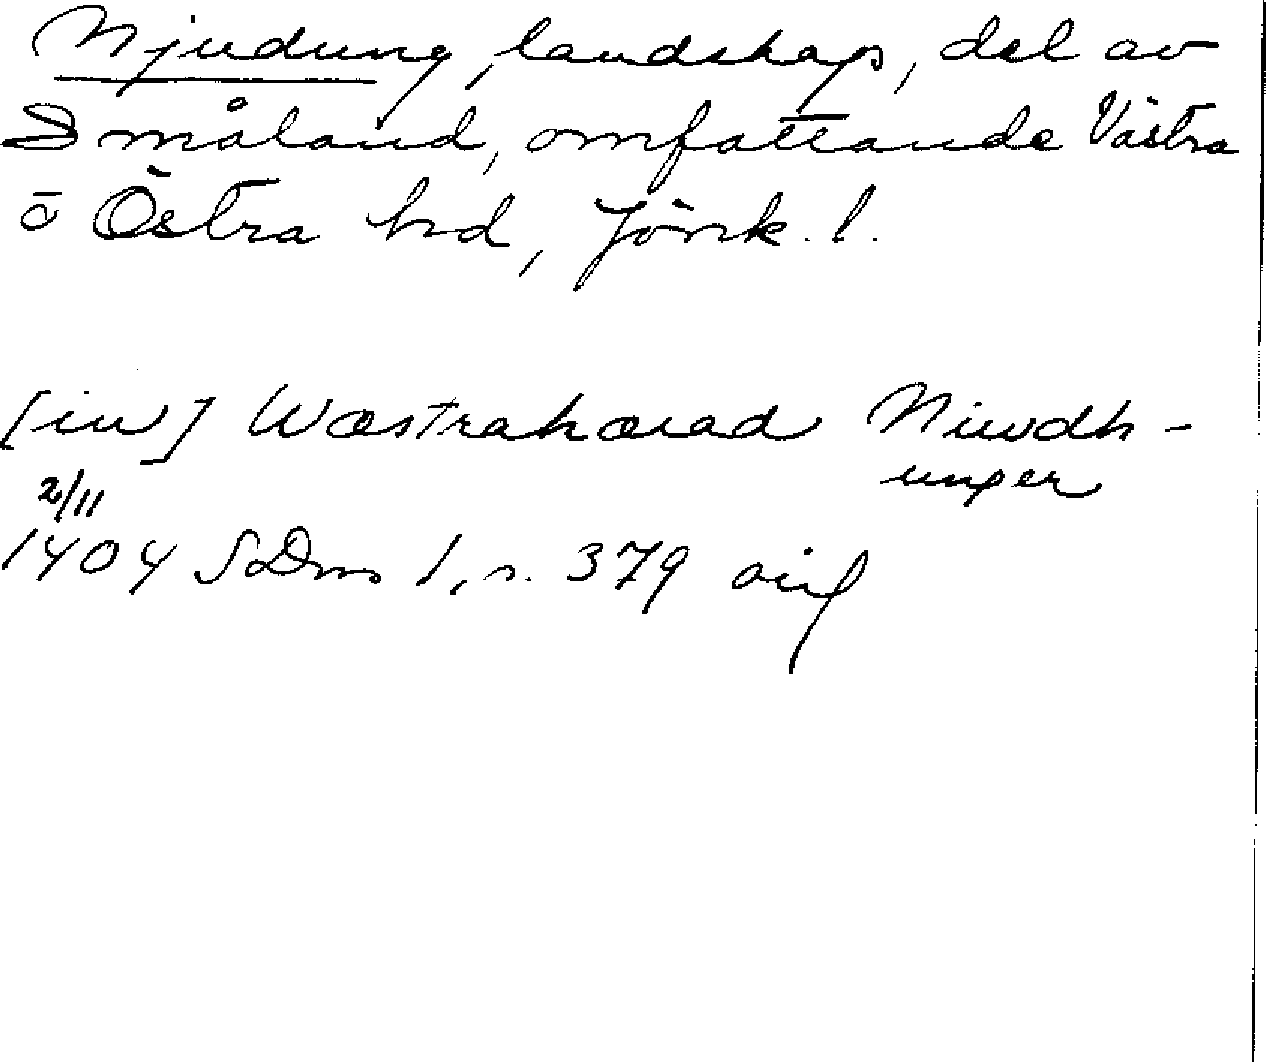 Njudung, landskap, del av
Småland, omfattande Västra
o Östra hd, Jönk. l.
[in] Wæstrahærad Niwdh-
unger
2/11
1404 SDns 1, s. 379 avs